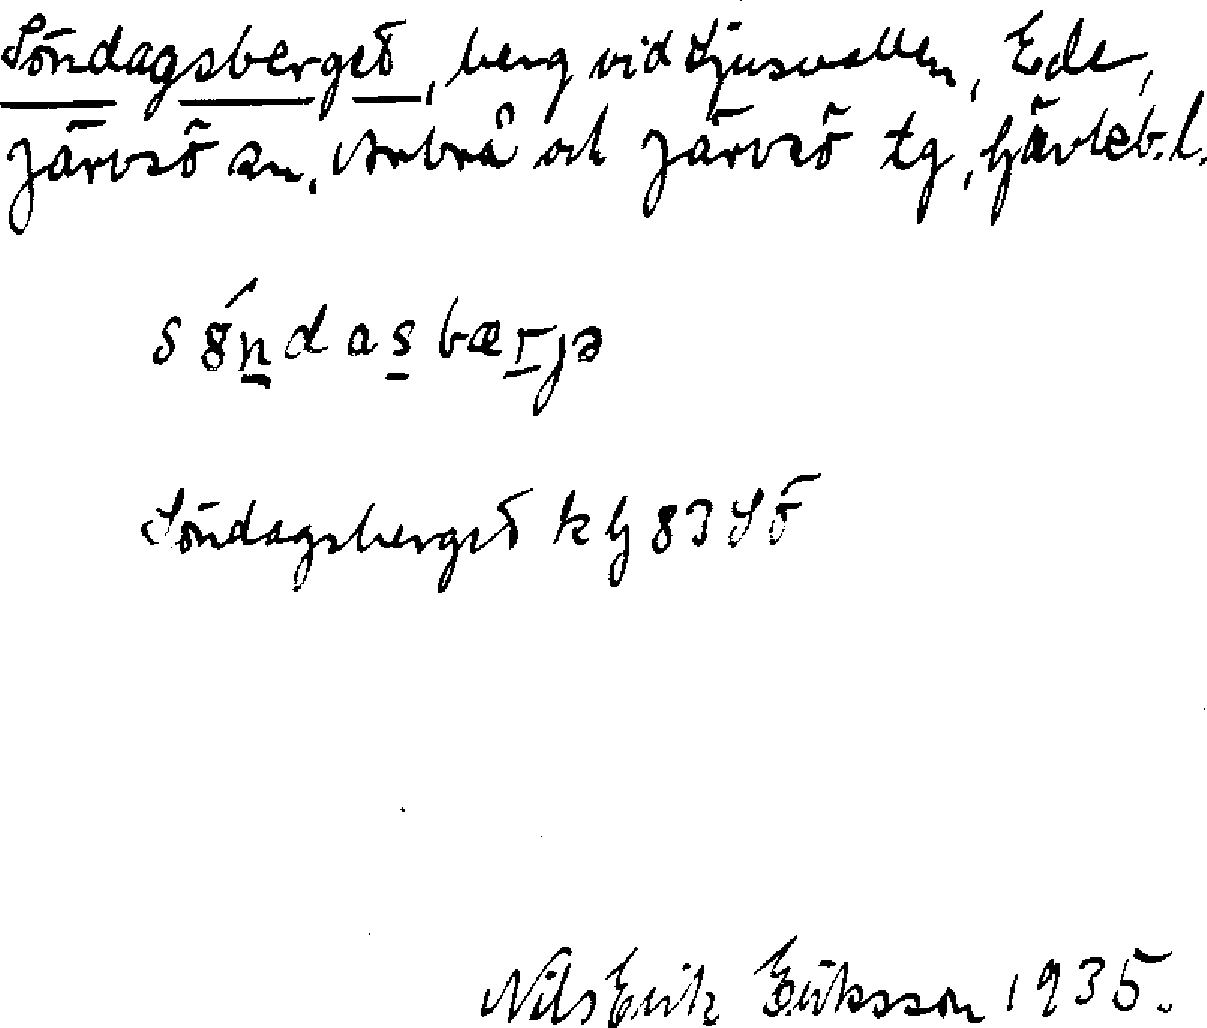 Söndagsberget, berg vid Ljusvallen, Ede,
Järvsö sn, Arbrå och Järvsö tg, Gävleb.l.
sǿndasbærjə
Söndagsberget k G 83 SÖ
Nils Erik Eriksson 1935.